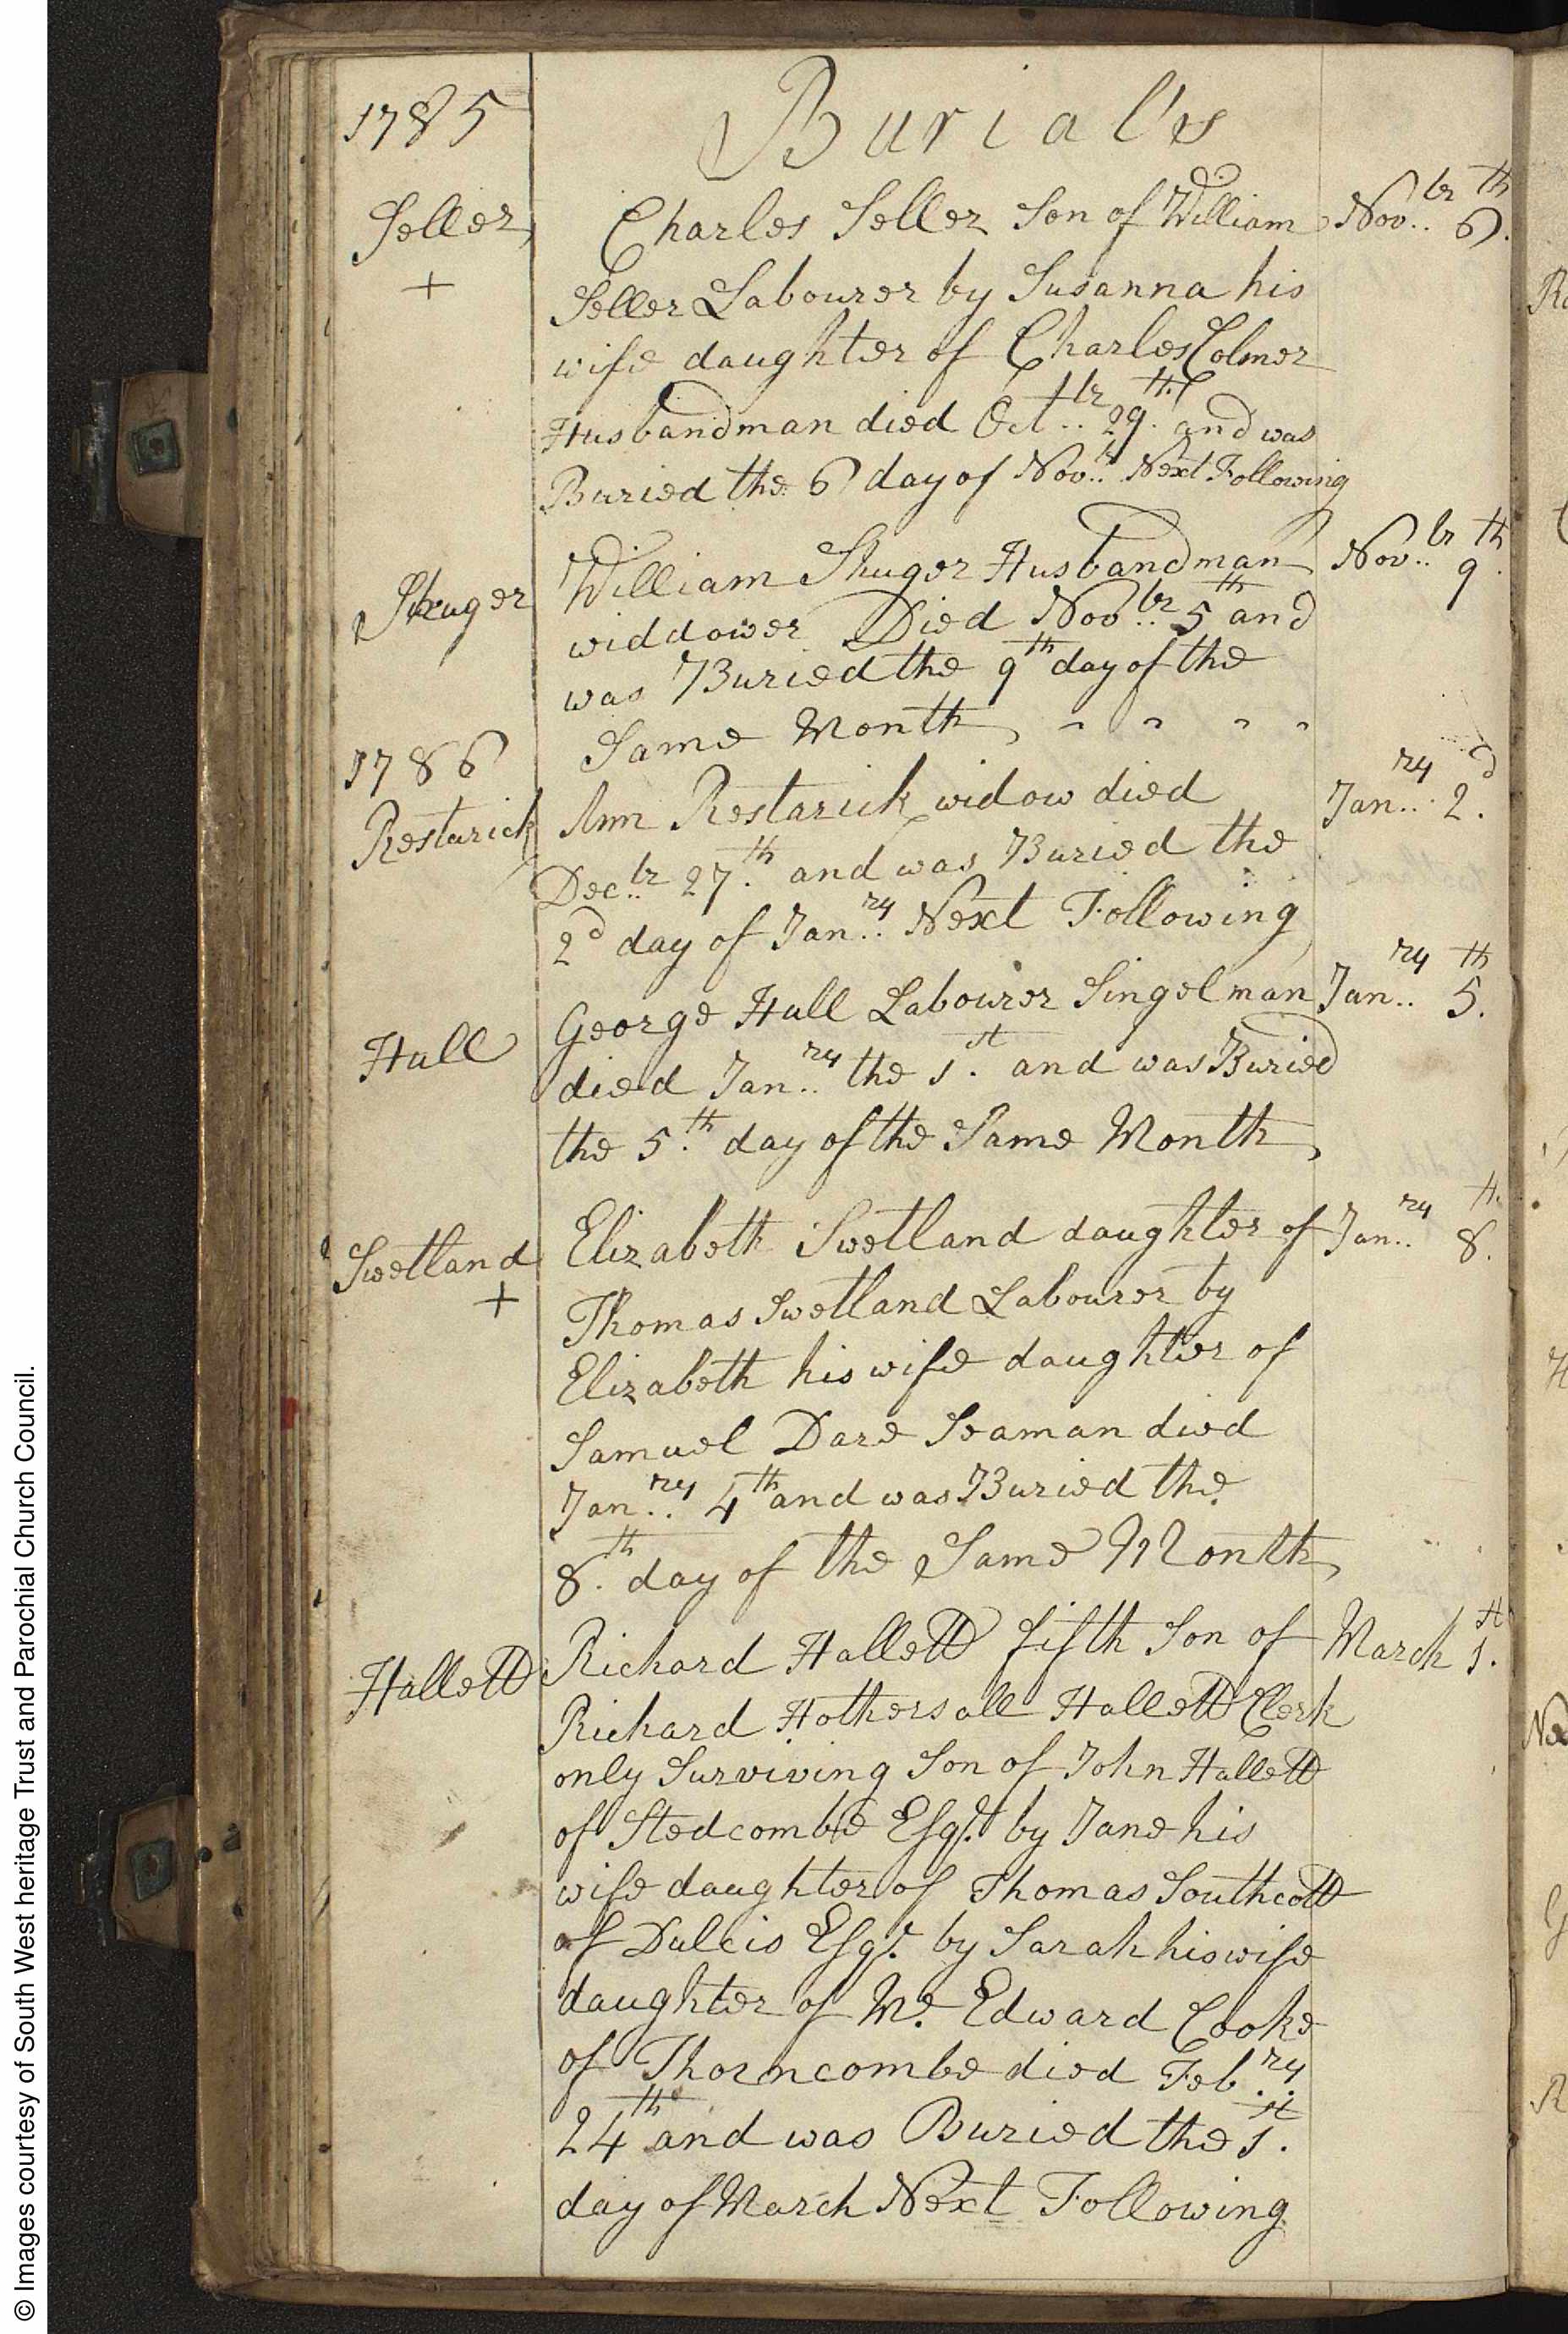 1785
Burial's
Seller
+
Charles Seller Son of William
Nov..br 6.th
Seller Labourer by Susanna his
wife daughter of Charles Colmer
Husbandman died Oct..br 29.th and was
Buried the 6 day of Nov..br Next Following
Shuger
William Shuger Husbandman
Nov..br 9.th
widdower Died Nov..br 5th and
was Buried the 9th day of the
Same Month
1786
Restarick
Ann Restarick widow died
Jan..ry 2.d
Dec..br 27.th and was Buried the
2d day of Jan..ry Next Following
Hull
George Hull Labourer Singelman
Jan..ry 5.th
died Jan..ry the 1.st and was Buried
the 5.th day of the Same Month
Swetland
+
Elizabeth Swetland daughter of
Jan..ry 8.th
Thomas Swetland Labourer by
Elizabeth his wife daughter of
Samuel Dare Seaman died
Jan..ry 4th and was Buried the
8.th day of the Same Month
Hallett
Richard Hallett fifth Son of
March 1.st
Richard Hothersall Hallett Clerk
only Surviving Son of John Hallett
of Stedcombe Esqr. by Jane his
wife daughter of Thomas Southcott
of Dulcis Esqr. by Sarah his wife
daughter of Mr. Edward Cooke
of Thorncombe died Feb..ry
24th and was Buried the 1.st
day of March Next Following
© Images courtesy of South West heritage Trust and Parochial Church Council.